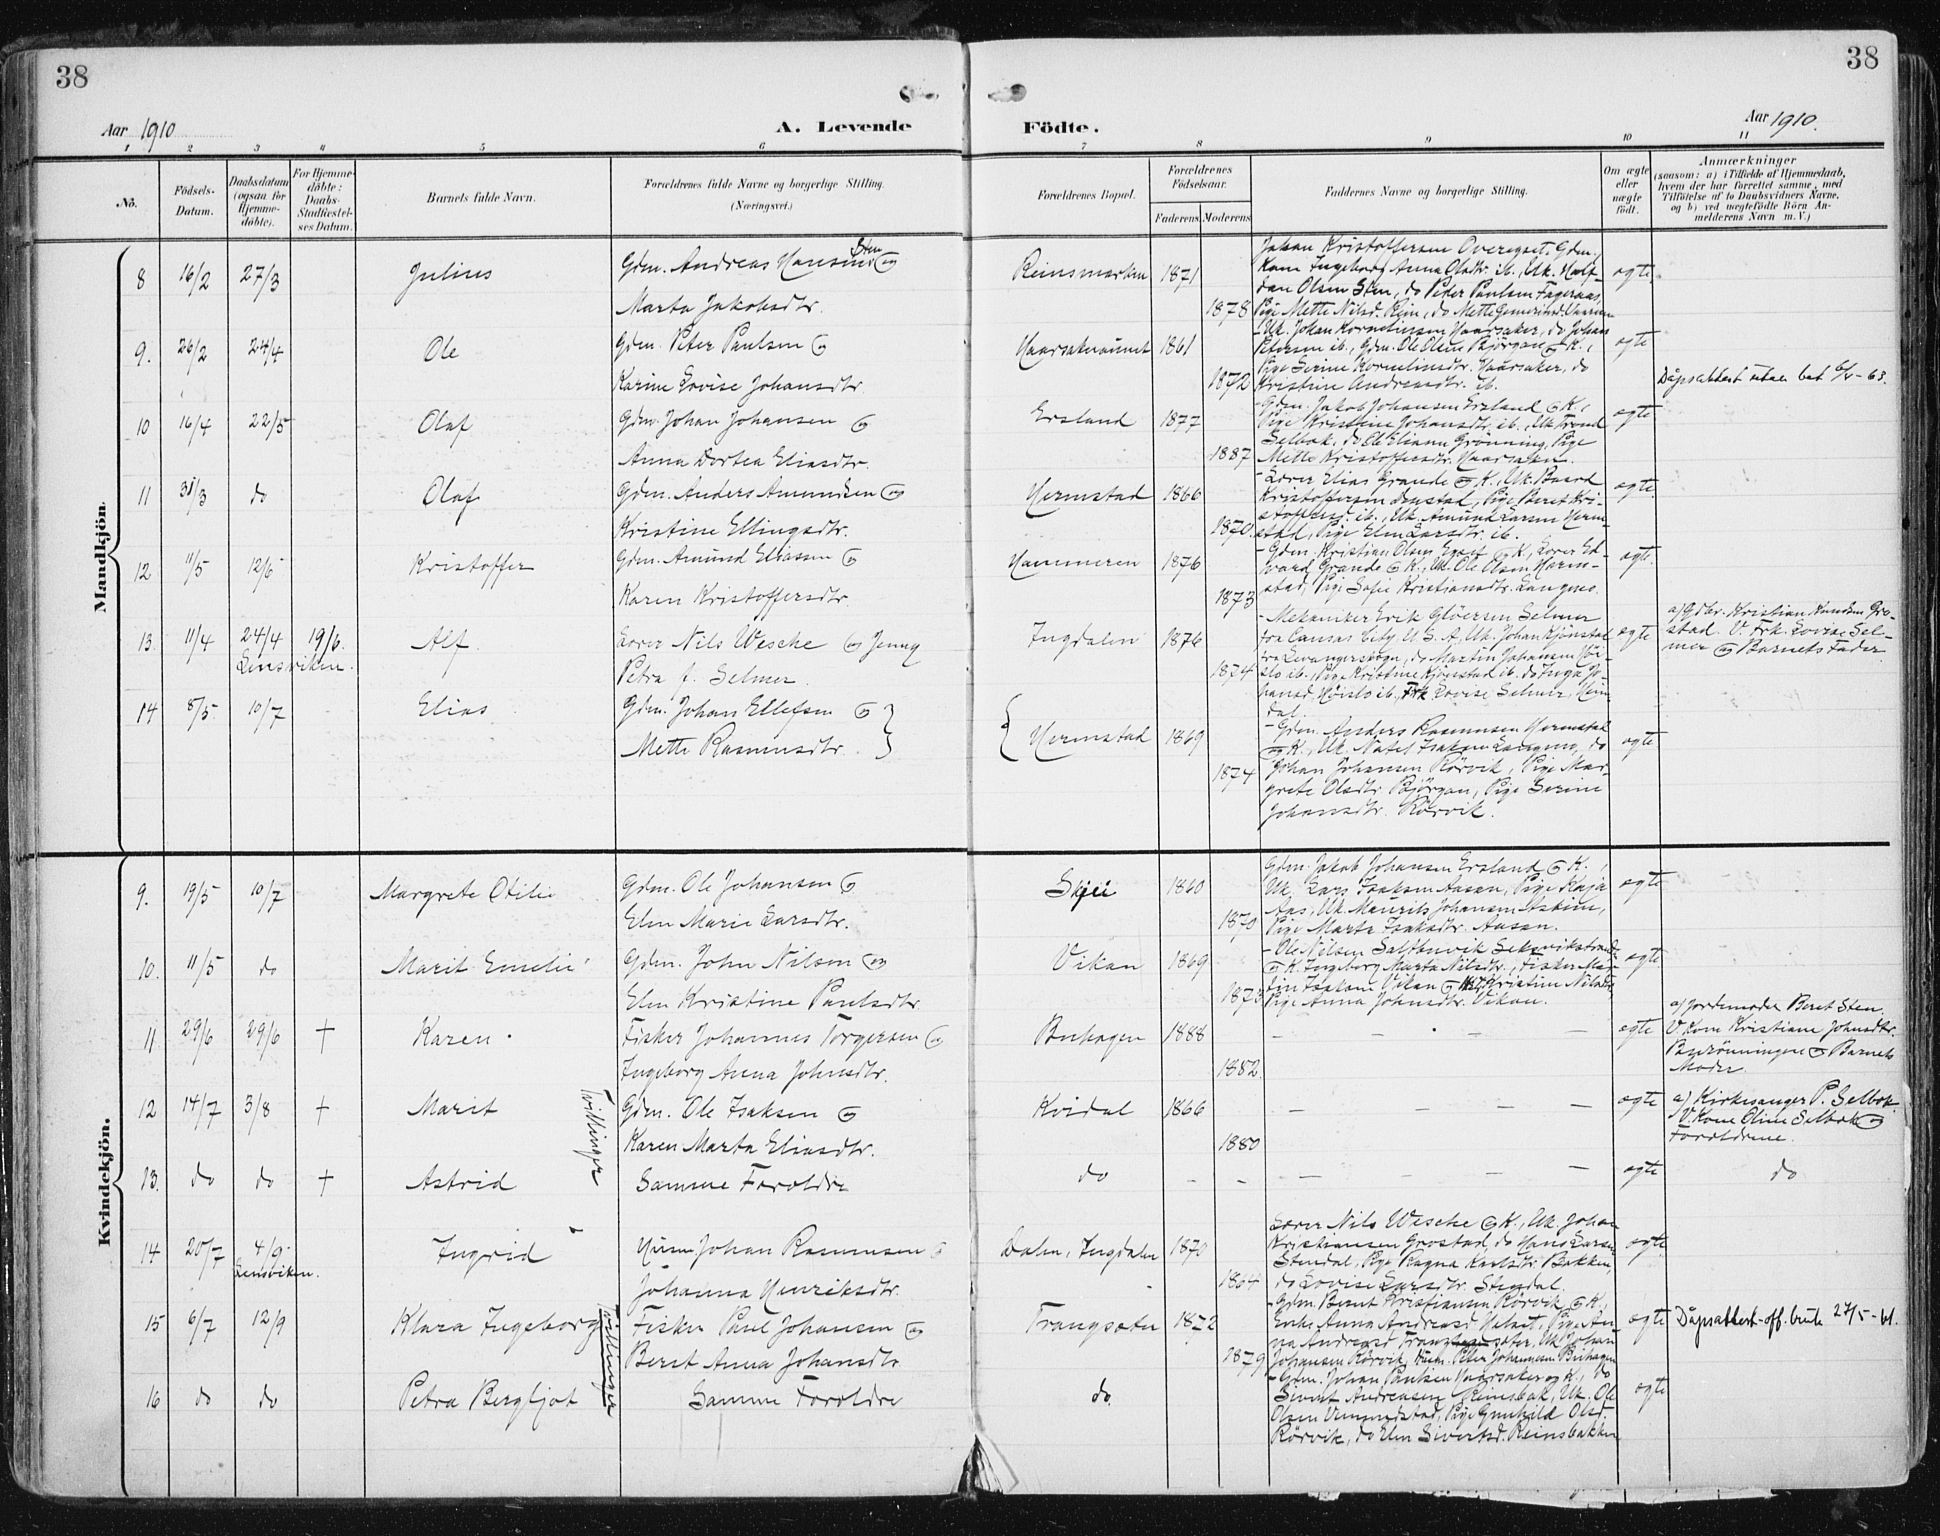 38
38
Aar 1910
A. Levende
Födte.
Aar 1910.
1 2 3 4 5 6 7 8 9 10 11
No.
Födsels-Datum.
Daabsdatum (ogsaa for Hjemmedöbte).
For Hjemmedöbte: Daabs-Stadfæstelses Datum.
Barnets fulde Navn.
Forældrenes fulde Navne og borgerlige Stilling. (Næringsvei.)
Forældrenes Bopæl.
Forældrenes Födselsaar.
Faderens. Moderens.
Faddernes Navne og borgerlige Stilling.
Om ægte eller uægte födt.
Anmærkninger (saasom: a) i Tilfælde af Hjemmedaab, hvem der har forrettet samme, med Tilföielse af to Daabsvidners Navne, og b) ved uægtefödte Börn Anmelderens Navn m. V.)
Mandkjön.
8 16/2 27/3 Julius Gdm. Andreas Hansen Sten og
Marta Jakobsdtr. Reinsmarken 1871 1878
Johan Kristoffersen Overegset. Gdm.,
Kone Ingeborg Anna Olsdtr. ib., Uk. Half-
dan Olsen Sten, do Peder Paulsen Fageraas,
Pige Mette Nilsd. Rein, do Mette
ægte
9. 26/2 24/4 Ole Gdm. Peter Paulsen og
Karine Lovise Johansdtr. Haarsakeraunet 1861 1872
Uk. Johan Kornelinssen Haarsaker, do Johan
Petersen ib., Gdm. Ole Olsen Björgan og K.,
Pige Serine Kornelinsdtr. Haarsaker, do
Kristine Andreasdtr. ib.
ægte
Dåpsattest
10 16/4 22/5 Olaf Gdm. Johan Johansen og
Anna Dortea Eliasdtr. Ersland 1877 1887
Gdm. Jakob Johansen Ersland og K.,
Pige Kristine Johansdtr. ib., Uk. Trond
Selbok, do Ole Eliasen Grönning, Pige
Mette Kristoffersdtr. Haarsaker.
ægte
11 31/3 do Olaf Gdm. Anders Amundsen og
Kristine Ellingsdtr. Hermstad 1866 1870.
Lærer Elias Grande og K., Uk. Baard
Kristoffersen Denstad, Pige Beret Kri-
stoffersd. ib., Uk. Amund Larsen Herm-
stad, Pige Elen Larsdtr. ib.
ægte
12 11/5 12/6 Kristoffer Gdm. Amund Eliassen og
Karen Kristoffersdtr. Hammeren 1876 1873
Gdm. Kristian Olsen og K., Lærer Ed-
vard Grande og K., Uk. Ole Olsen Harm-
stad, Pige Sofie Kristiansdtr. Langmo.
ægte.
13. 11/4 24/4 Lensviken 19/6. Alf. Lærer Nils Wesche og Jenny
Petra f. Selmer. Ingdalen 1876 1874
Mekaniker Erik Glöersen Selmer
fra Cansas City U. S. A, Uk. Johan Kjönstad
fra Levangerskogn, do Martin Johansen Höi-
slo ib., Pige Kristine Kjönstad ib. do Inga Jo-
hansd. Höislo ib., Frk Lovise Selmer, Heim-
dal.
ægte
a) Gdbr. Kristian Knudsen Gro-
stad. V. Frk. Lovise Sel-
mer og Barnets Fader.
14 8/5 10/7 Elias Gdm. Johan Ellefsen og
Mette Rasmusdtr. Hermstad 1869 1874
Gdm. Anders Rasmussen Hermstad
og K., Uk. Isaksen Langmo, do
Johan Johansen Rörvik, Pige Mar-
grete Olsdtr. Björgan, Pige Serine
Johansdtr. Rörvik.
ægte
Kvindekjön.
9. 19/5 10/7 Margrete Otilie Gdm. Ole Johansen og
Elen Marie Larsdtr. Skjei 1860 1870
Gdm. Jakob Johansen Ersland og K.,
Uk. Lars Isaksen Aasan, Pige Kaja
Aas, Uk. Maurits Johansen Askim,
Pige Marta Isaksdtr. Aasan.
ægte
10. 11/5 do Marit Emelie Gdm. John Nilsen og
Elen Kristine Paulsdtr. Vikan 1869 1873
Ole Nilsen Salthuvik Seksvikstrand
og K. Ingeborg Marta Nilsdtr., Fisker Mar-
tin Isaksen Vikan og Kristine Nilsdtr.,
Pige Anna Johnsdtr. Vikan.
ægte
11. 29/6 29/6 + Karen. Fisker Johannes Torgersen og
Ingeborg Anna Johnsdtr. Buhagen 1888 1882.
— — — —
ægte
a) Jordemoder Beret Sten.
V. Kone Kristiane Johnsdtr.
og Barnets
Moder.
12 14/7 3/8 + Marit Tvillinger Gdm. Ole Isaksen og
Karen Marta Eliasdtr. Kvidal 1866 1880
— — — —
ægte
a) Kirkesanger P. Selbok.
V. Kone Oline Selbok og
Forældrene.
13. do do + Astrid Samme Forældre do - -
— — — —
ægte do
14 20/7 4/9 Lensviken. Ingrid Husm. Johan Rasmussen og
Johanna Henriksdtr. Dalen, Ingdalen 1870 1864
Lærer Nils Wesche og K., Uk. Johan
Kristiansen Grostad, do Hans Larsen
Stendal, Pige Ragna Karlsdtr. Bakken,
do Lovise Larsdtr. Stendal.
ægte
15 6/7 12/9 Klara Ingeborg Tvillinger Fisker Paul Johansen og
Berit Anna Johansdtr. Trangsæter 1872 1879
Gdm. Bernt Kristiansen Rörvik og K.,
Enke Anna Andreasd. Helset, Pige An-
na Andreasd. Trangsæter, Uk. Johan
Johansen Rörvik, Husm. Peter Johannesen Buhagen
ægte
Dåpsattest-off. bruk 27/5-61.
16 do do Petra Bergljot Samme Forældre do.
Gdm. Johan Paulsen Haarsaker og K., do
Sivert Andreasen Reinsbak, Uk. Ole
Olsen Vemundstad, Pige Gunhild Olsd.
Rörvik, do Elen Sivertsd. Reinsbakken
ægte